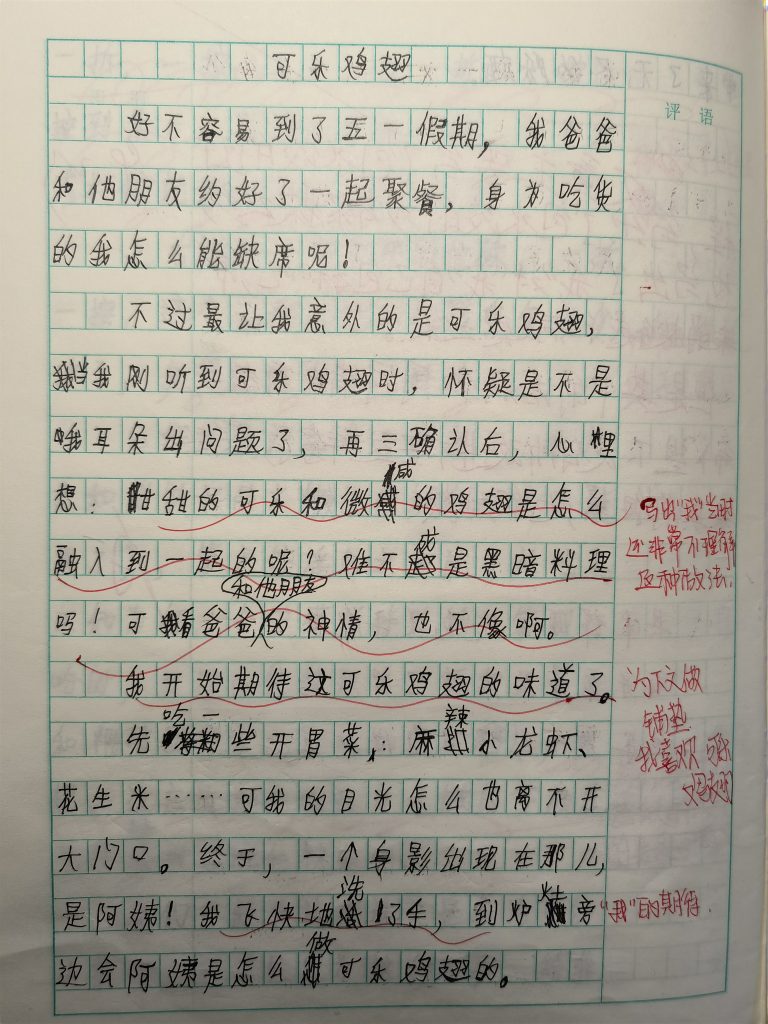 可乐鸡翅
评语
好不容易到了五一假期，我爸爸
和他朋友约好了一起聚餐，身为吃货
的我怎么能缺席呢！
不过最让我意外的是可乐鸡翅，
当我刚听到可乐鸡翅时，怀疑是不是
我耳朵出问题了，再三确认后，心里
想：甜甜的可乐和微咸的鸡翅是怎么
融入到一起的呢？难不成是黑暗料理
吗！可看爸爸和他朋友的神情，也不像啊。
我开始期待这可乐鸡翅的味道了。
先吃一些开胃菜：麻辣小龙虾、
花生米……可我的目光怎么也离不开
大门口。终于，一个身影出现在那儿，
是阿姨！我飞快地洗了手，到炉灶旁
边会阿姨是怎么做可乐鸡翅的。
写出"我"当时
还非常不理解
这种做法，
为下文做
铺垫
我喜欢可乐
鸡翅
"我"的期待